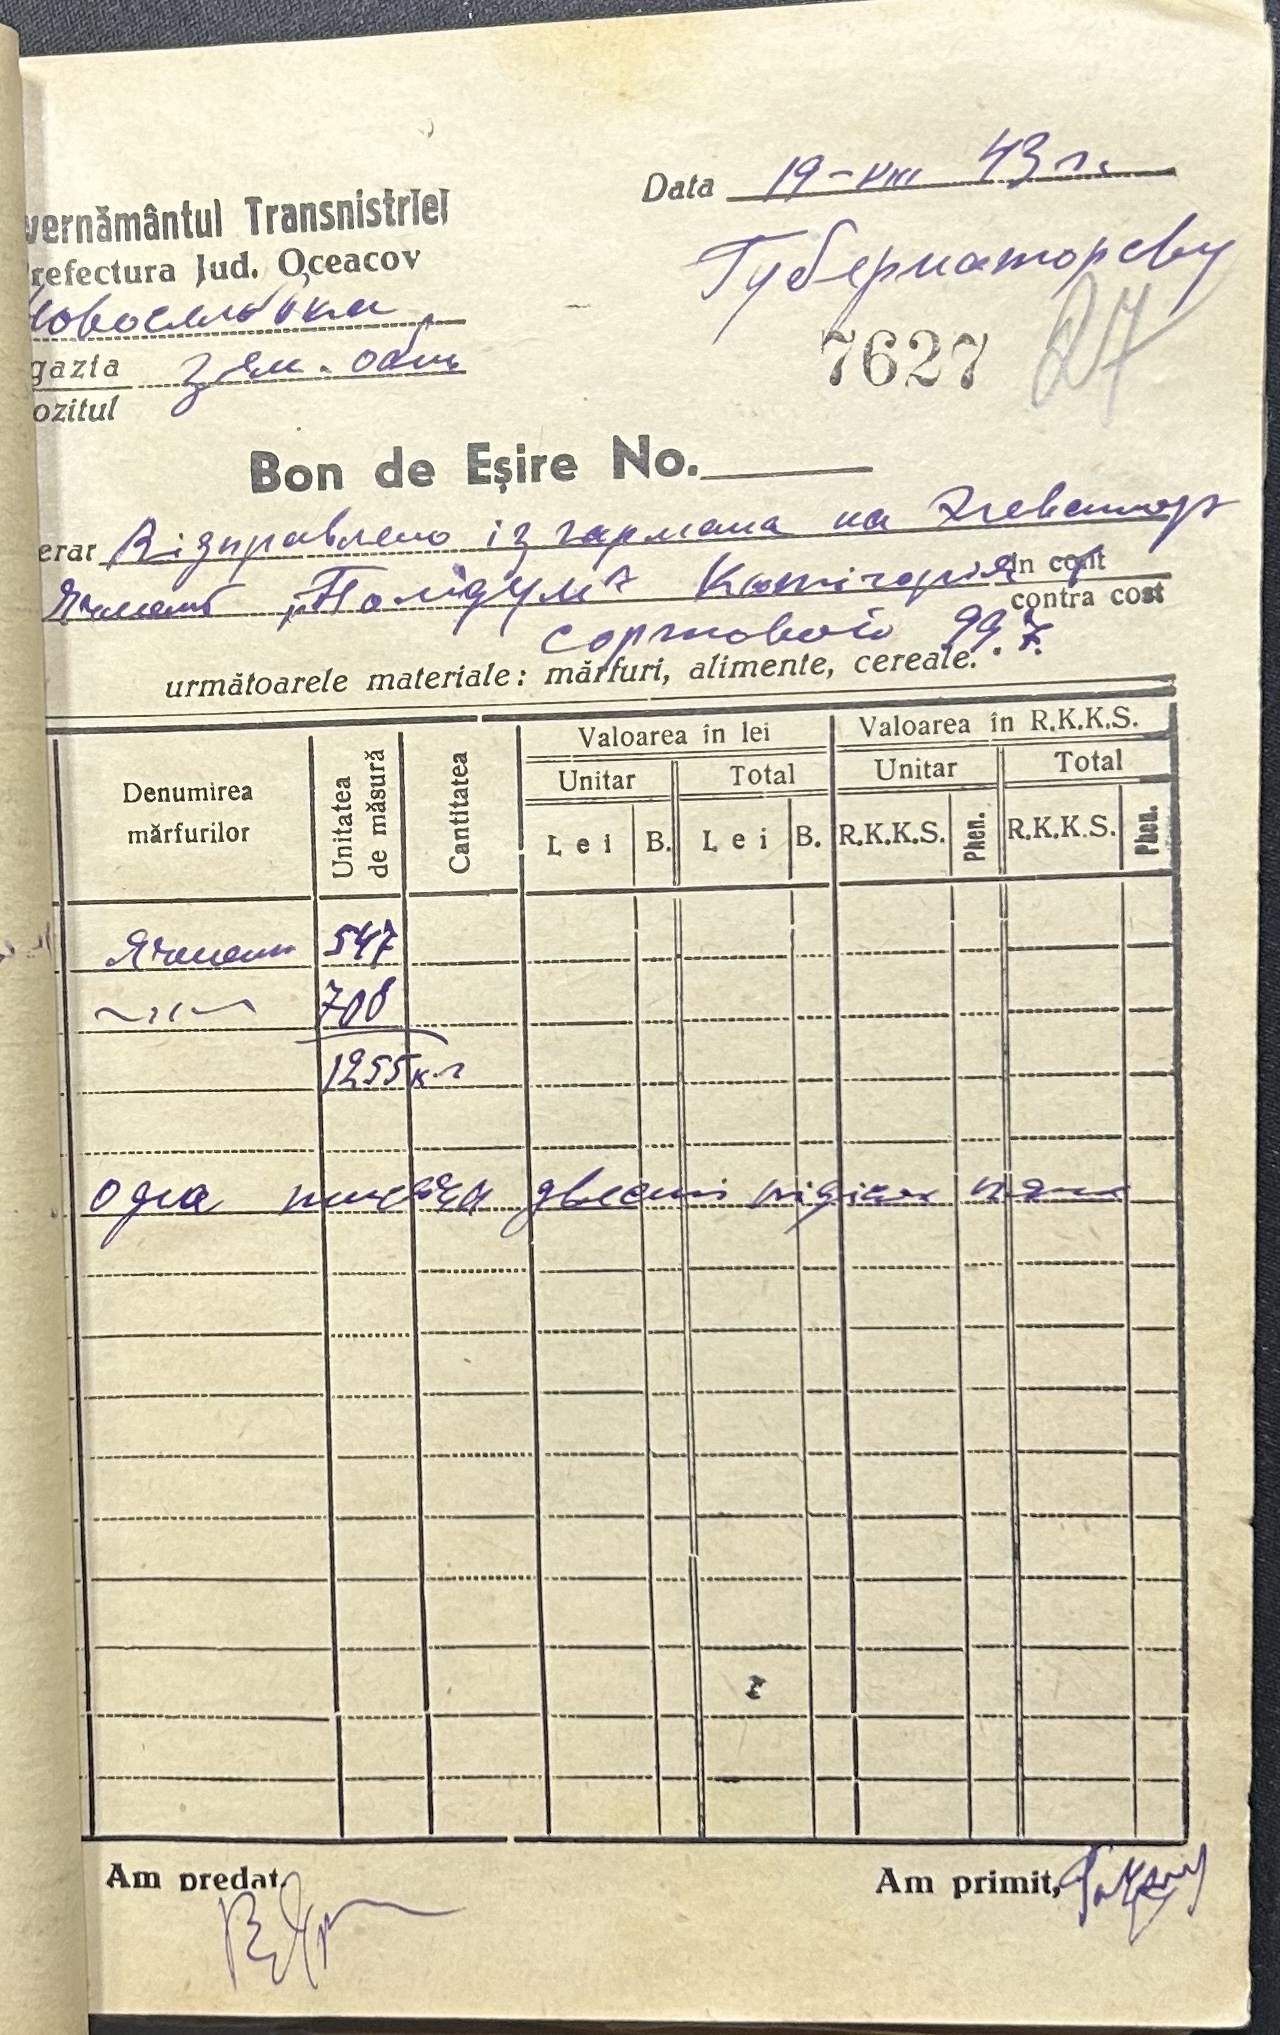 Data 19-VIII 43 г.
vernământul Transnistriei
refectura Jud. Oceacov
Губернаторству
овоселівка
7627
27
gazia зем. общ
ozitul
Bon de Eșire No.
erar Відправлено із гармана на Элеватор
Ячмень „Палідум" Категорія in cont
contra cost
сортового 99 %
următoarele materiale: mărfuri, alimente, cereale.
Denumirea mărfurilor
Unitatea de măsură
Cantitatea
Valoarea în lei
Valoarea în R.K.K.S.
Unitar Total Unitar Total
Lei B. Lei B. R.K.K.S. Phen. R.K.K.S. Phen.
Ячмень 547
—〃— 708
1255 кг
одна тисяча двести підісят пять
Am predat,
Am primit,